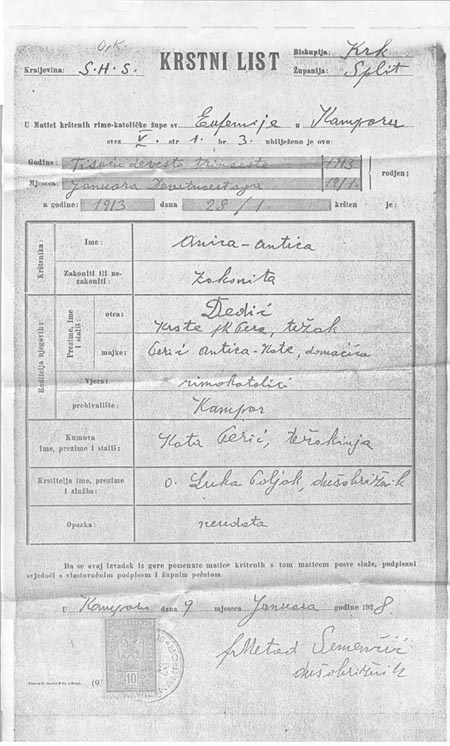 KRSTNI LIST
Kraljovina: S.H.S.
Biskupija: Krk
Županija: Split
U Matici krštenih rimo-katoličke župe sv. Eufemije u Kamporu
svez. V. str. 1. br. 3. ubilježeno je ovo:
Godine: Tisuću devesto trinaeste 1913 rodjen;
Mjeseca: Januara Devetnaestoga 19/1.
a godine: 1913 dana 28/1. kršten je:
Krštenika:
Ime: Anica-Antica
Zakoniti ili nezakoniti: zakonita
Roditelja njegovih:
Prezime, ime i stališ:
otca: Dedić
Krste pk Pera, težak
majke: Perić Antica-Kate, domaćica
Vjera: rimokatolici
prebivalište: Kampor
Kumova ime, prezime i stališ: Kata Perić, težakinja
Krstitelja ime, prezime i služba: o. Luka Poljak, dušobrižnik
Opazka: neudata
Da se ovaj izvadak iz gore pomenute matice krštenih s tom maticom posve slaže, podpisani
svjedoči s vlastoručnim podpisom i župnim pečatom.
U Kamporu dana 9 mjeseca Januara godine 1928.
fr Metod Semenčić
dušobrižnik
10